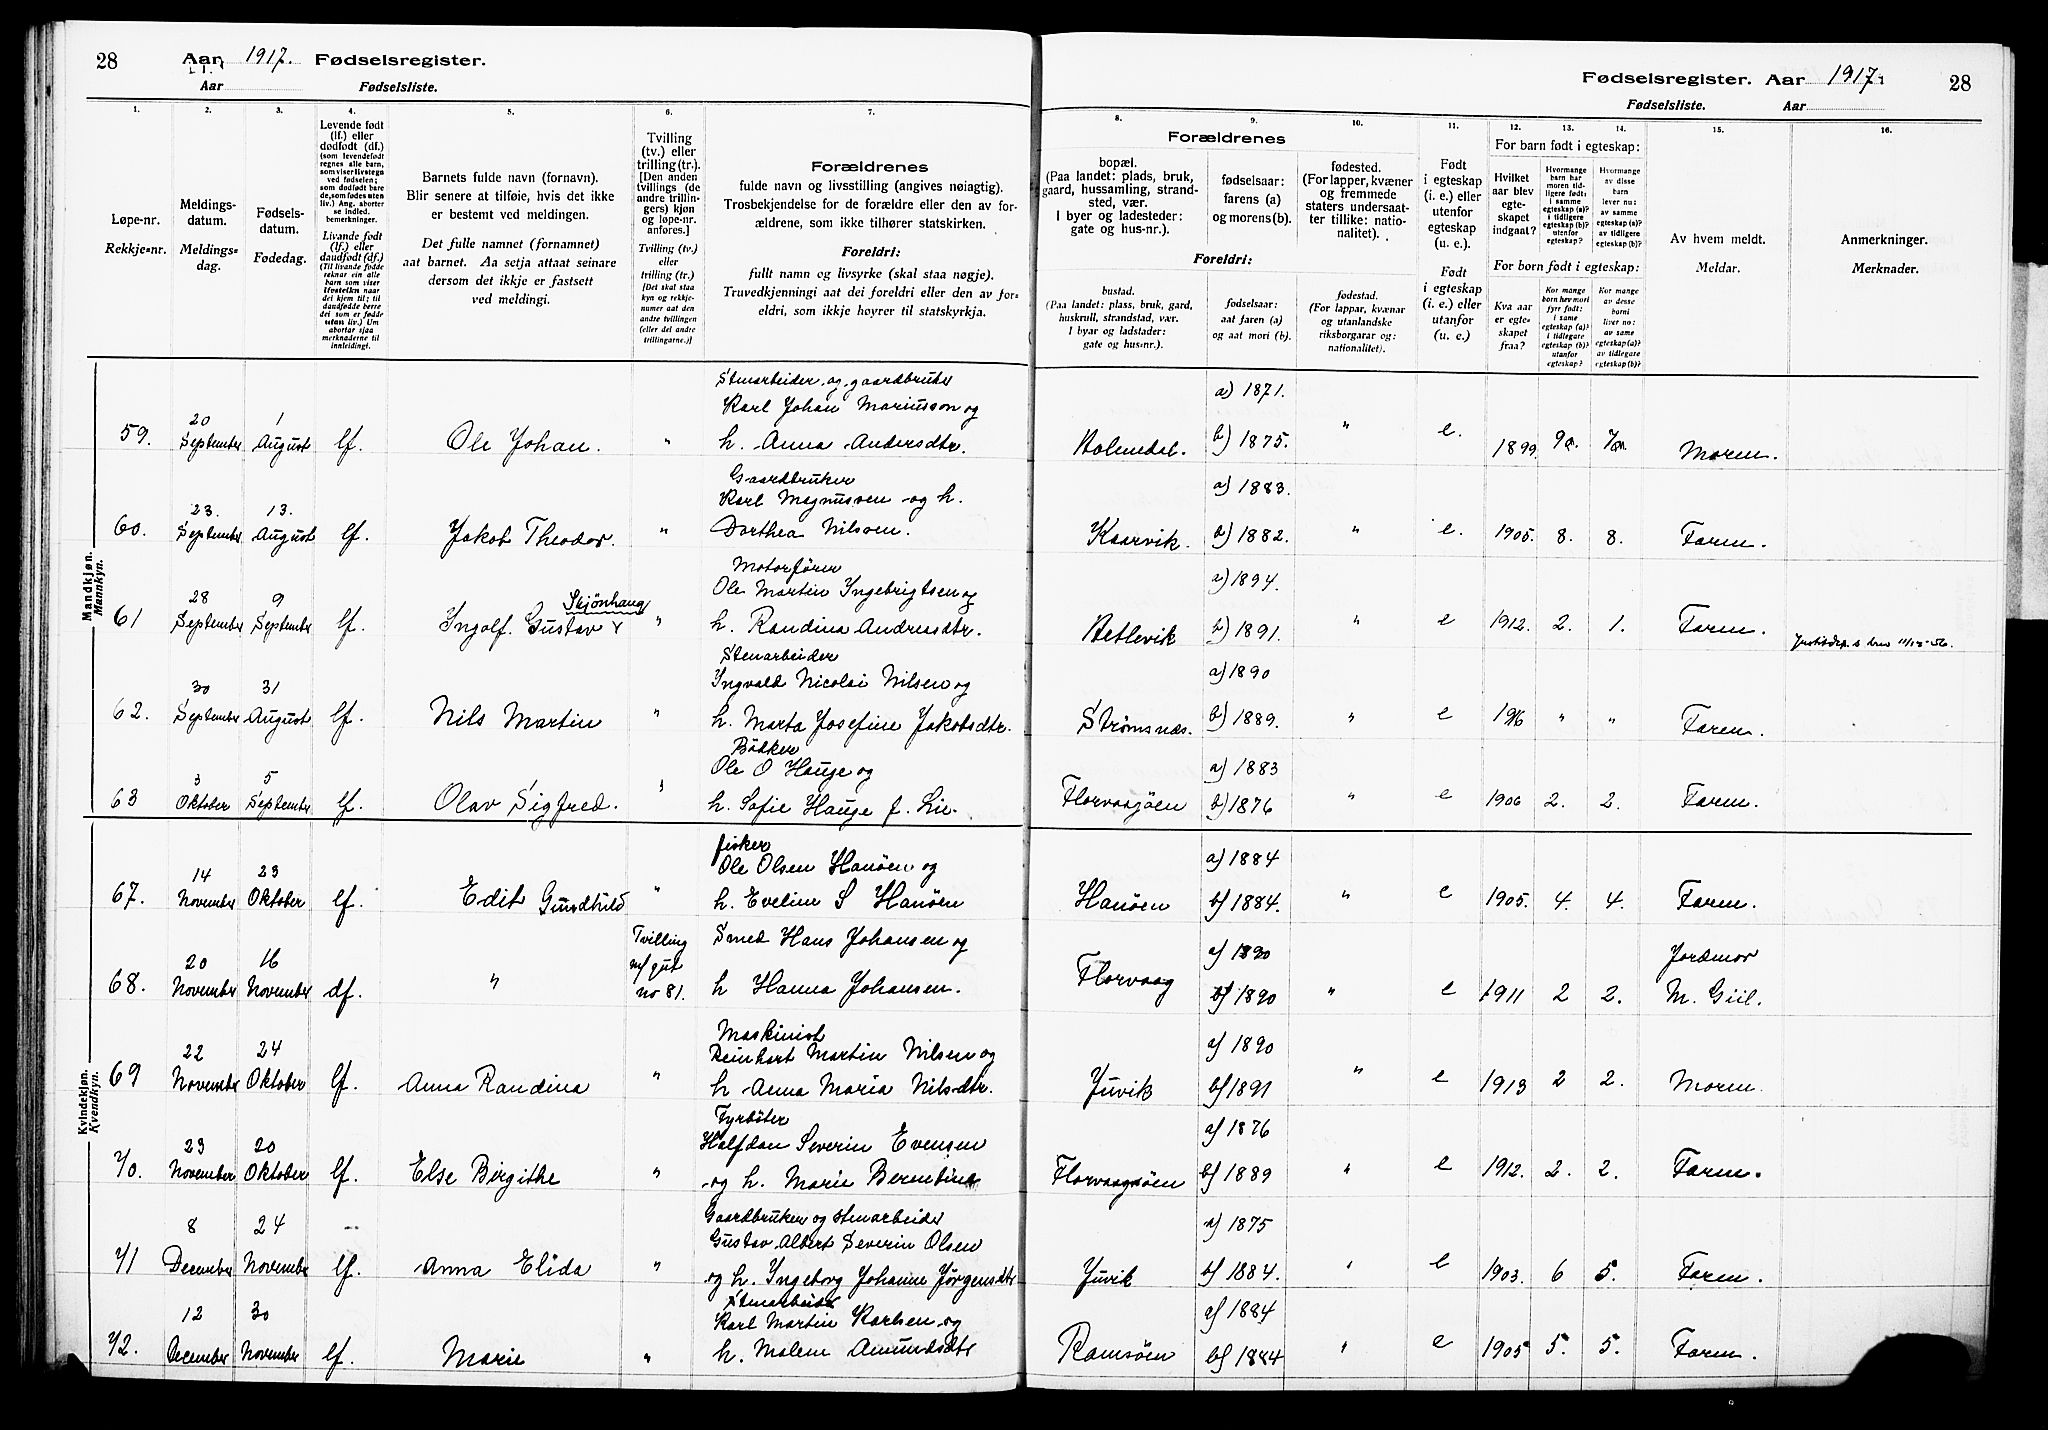 28 Aar 1917. Fødselsregister.
Aar Fødselsliste.
Fødselsregister. Aar 1917. 28
Fødselsliste. Aar
1. 2. 3. 4. 5. 6. 7. 8. 9. 10. 11. 12. 13. 14. 15. 16.
Løpe-nr.
Rekkje-nr.
Meldings-
datum.
Meldings-
dag.
Fødsels-
datum.
Fødedag.
Levende født
(lf.) eller
dødfødt (df.)
(som levendefødt
regnes alle barn,
som viser livstegn
ved fødselen;
som dødfødt bare
de, som fødes uten
liv.) Ang. aborter
se indled.
bemerkninger.
Livande født
(lf.) eller
daudfødt (df.)
(Til livande fødde
reknar ein alle
barn som viser
livsteikn naar
dei kjem til; til
daudfødde berre
dei som er fødde
utan liv.) Um
abortar sjaa
merknaderne til
innleiding.
Barnets fulde navn (fornavn).
Blir senere at tilføie, hvis det ikke
er bestemt ved meldingen.
Det fulle namnet (fornamnet)
aat barnet. Aa setja attaat seinare
dersom det ikkje er fastsett
ved meldingi.
Tvilling
(tv.) eller
trilling (tr.).
[Den anden
tvillings (de
andre trillin-
gers) kjøn
og løpe-nr.
anføres.]
Tvilling (tv.)
eller
trilling (tr.)
[Det skal staa
kyn og rekkje-
numer aat den
andre tvillingen
(eller dei andre
trillingarne.)]
Forældrenes
fulde navn og livsstilling (angives nøiagtig).
Trosbekjendelse for de forældre eller den av for-
ældrene, som ikke tilhører statskirken.
Foreldri:
fullt namn og livsyrke (skal staa nøgje).
Truvedkjenningi aat dei foreldri eller den av for-
eldri, som ikkje høyrer til statskyrkja.
Forældrenes
bopæl.
(Paa landet: plads, bruk,
gaard, hussamling, strand-
sted, vær.
I byer og ladesteder:
gate og hus-nr.).
fødselsaar:
farens (a)
og morens (b).
fødested.
(For lapper, kvæner
og fremmede
staters undersaat-
ter tillike: natio-
nalitet).
Foreldri:
bustad.
(Paa landet: plass, bruk, gard,
huskrull, strandstad, vær.
I byar og ladstader:
gate og hus-nr.).
fødselsaar:
aat faren (a)
og aat mori (b).
fødestad.
(For lappar, kvænar
og utanlandske
riksborgarar og:
nationalitet).
Født
i egteskap
(i. e.) eller
utenfor
egteskap
(u. e.).
Født
i egteskap
(i. e.) eller
utanfor
(u. e.)
For barn født i egteskap:
Hvilket
aar blev
egte-
skapet
indgaat?
Hvormange
barn har
moren tid-
ligere født:
i samme
egteskap (a)?
i tidligere
egteskap (b)?
utenfor
egteskap?
Hvormange
av disse
barn
lever nu:
av samme
egteskap (a)?
av tidligere
egteskap (b)?
For born født i egteskap:
Kva aar
er egte-
skapet
fraa?
Kor mange
born hev mori
fyrr født:
i same
egteskap (a)?
i tidlegare
egteskap (b)?
utanfor
egteskap?
Kor mange
av desse
borni
liver no:
av same
egteskap (a)?
av tidlegare
egteskap (b)?
Av hvem meldt.
Meldar.
Anmerkninger.
Merknader.
Mandkjøn.
Mannkyn.
Stenarbeider og gaardbruker
20 1 Karl Johan Mariusson og a) 1871.
59. September August lf. Ole Johan. " h. Anna Andersdtr. Holmedal. b) 1875. " e. 1899. 9a. 7a. Moren.
Gaardbruker
23. 13. Karl Magnussen og h. a) 1883.
60. September August lf. Jakob Theodor. " Dorthea Nilsen. Kaarvik. b) 1882. " e. 1905. 8. 8. Faren.
Motorfører
28 9 Skjønhaug Ole Martin Ingebrigtsen og a) 1894.
61 September September lf. Ingolf. Gustav Y " h. Randina Andreasdtr. Hetlevik b) 1891. " e 1912. 2. 1. Faren. Justisdep. s brev 11/12-56.
Stenarbeider
30 31 Ingvald Nicolai Nilsen og a) 1890
62. September August lf. Nils Martin " h. Marta Josefine Jakobsdtr. Strømsnæs. b) 1889. " e 1916 " " Faren.
Bødker
3 5 Ole O Hauge og a) 1883
63 Oktober September lf. Olav Sigfred. " h. Sofie Hauge f. Lie. Florvaagøen b) 1876 " e 1906 2. 2. Faren.
Kvindekjøn.
Kvendkyn.
fisker
14 23 Ole Olsen Hanøen og a) 1884
67. November Oktober lf. Edit Gundhild " h. Eveline S Hanøen Hanøen b) 1884. " e 1905. 4. 4. Faren.
20 16 Tvilling Smed Hans Johansen og a) 1890 Jordmor
m/ gut
68. November November df. " no 81. h Hanna Johansen. Florvaag b) 1890 " e 1911 2 2. M. Giil.
Maskinist
22 24 Reinhart Martin Nilsen og a) 1890
69 November Oktober lf. Anna Randina " h Anna Maria Nilsdtr. Juvik b) 1891 " e 1913 2 2. Moren.
Fyrbøter
23 20 Halfdan Severin Evensen a) 1876
70. November Oktober lf. Else Birgithe " og h. Marie Berntine Florvaagøen b) 1889 " e 1912. 2. 2. Faren.
Gaardbruker og stenarbeider
8 24 Gustav Albert Severin Olsen a) 1875
71 December November lf. Anna Elida " og h. Ingeborg Johanne Jørgensdtr Juvik b) 1884. " e 1903. 6 5. Faren.
Stenarbeider
12 30 Karl Martin Karlsen og a) 1884
72. December November lf. Marie " h. Malene Amundsdtr Ramsøen b) 1884 " e 1905 5. 5. Faren.